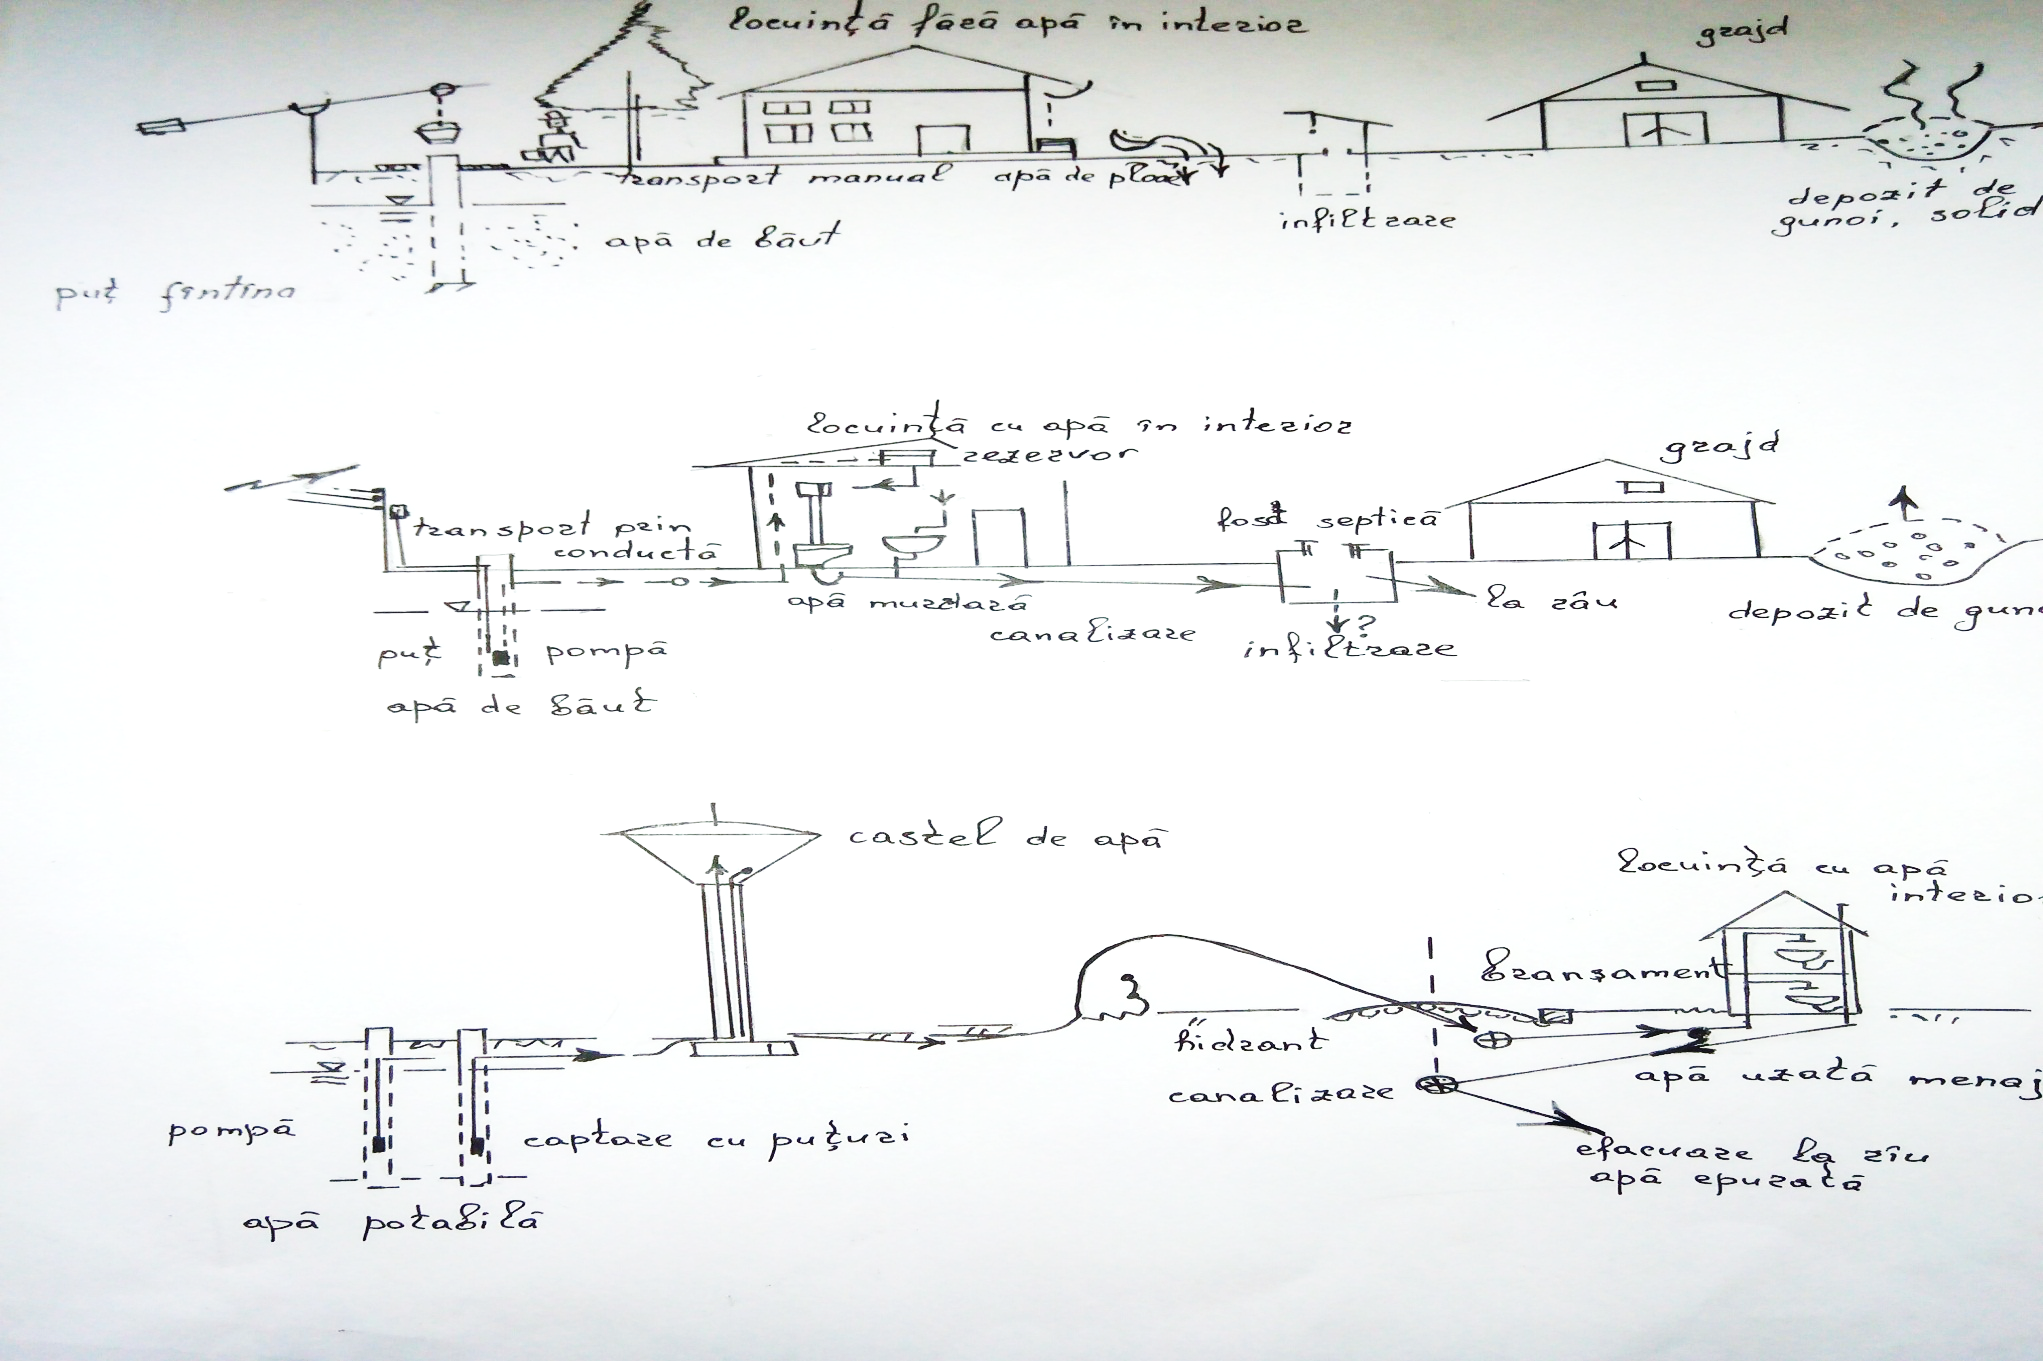 locuință fără apă în interior
grajd
transport manual
apă de ploaie
depozit de
gunoi, solid
infiltrare
apă de băut
puț fîntîna
locuință cu apă în interior
rezervor
grajd
transport prin
conductă
fosă septică
apă murdară
la râu
depozit de gun
canalizare
infiltrare
?
puț
pompă
apă de băut
castel de apă
locuință cu apă
interio
branșament
hidrant
canalizare
apă uzată menaj
pompă
captare cu puțuri
efacuare la rîu
apă epurată
apă potabilă